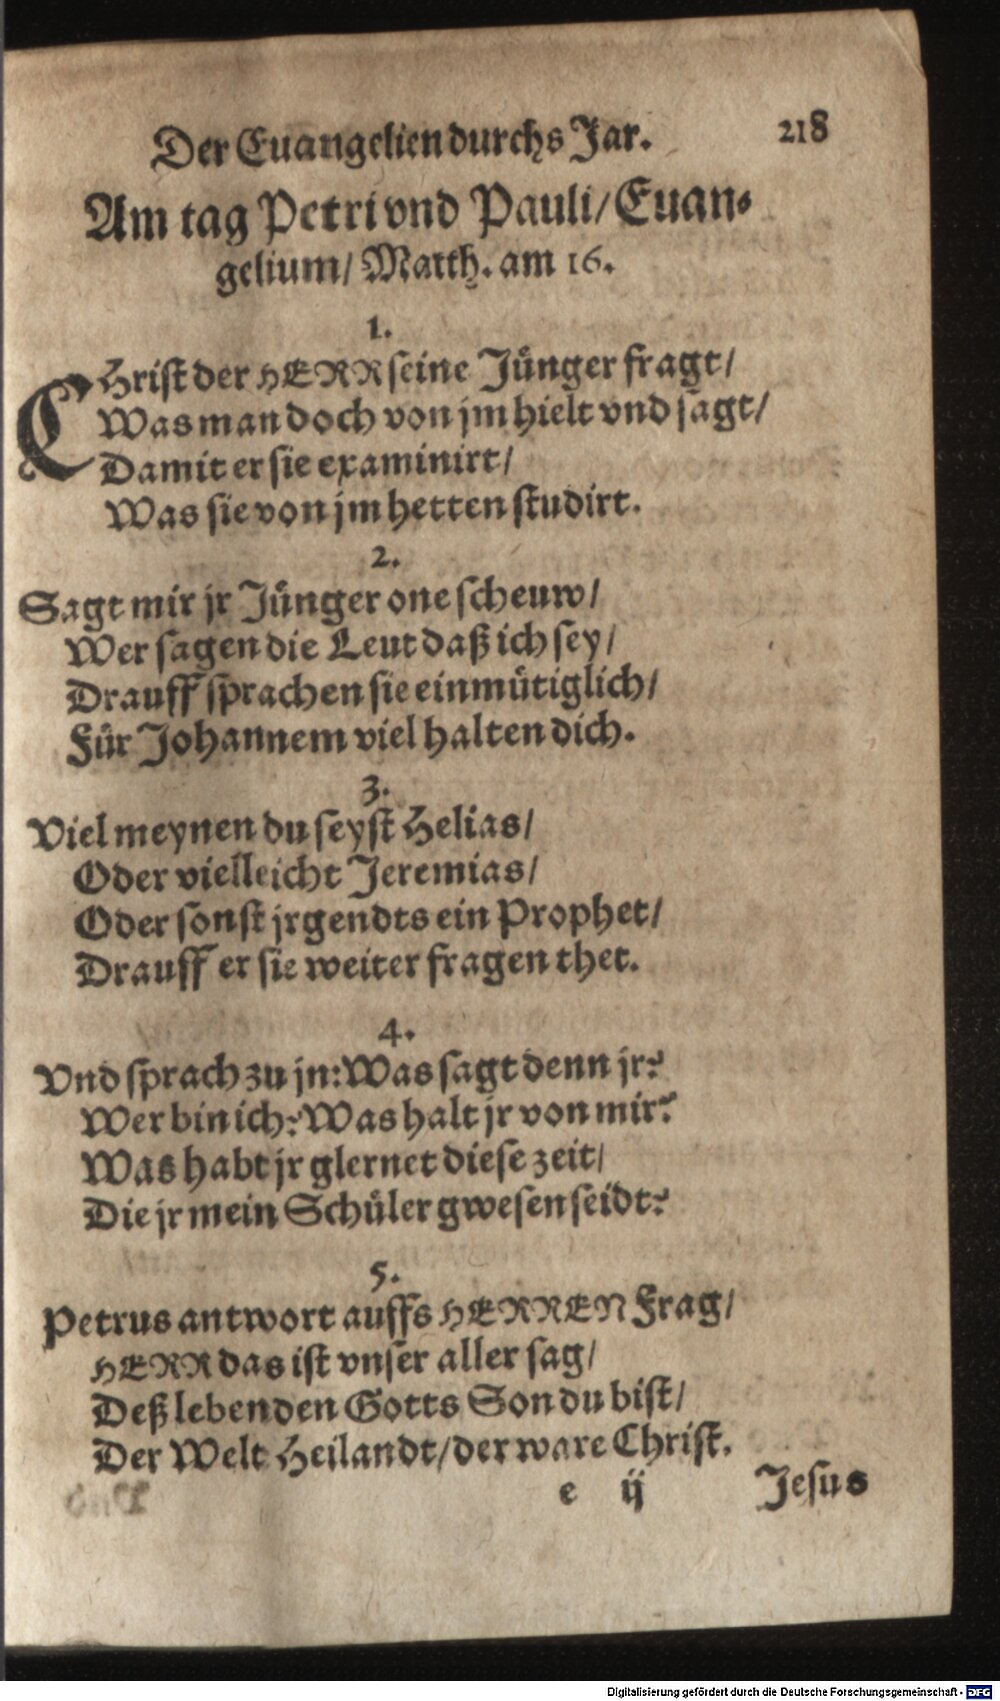 Der Euangelien durchs Jar. 218
Am tag Petri vnd Pauli/ Euan-
gelium/ Matth. am 16.
1.
CHrist der HERR seine Jünger fragt/
Was man doch von jm hielt vnd sagt/
Damit er sie examinirt/
Was sie von jm hetten studirt.
2.
Sagt mir jr Jünger one scheuw/
Wer sagen die Leut daß ich sey/
Drauff sprachen sie einmütiglich/
Für Johannem viel halten dich.
3.
Viel meynen du seyst Helias/
Oder vielleicht Jeremias/
Oder sonst jrgendts ein Prophet/
Drauff er sie weiter fragen thet.
4.
Vnd sprach zu jn: Was sagt denn jr?
Wer bin ich? Was halt jr von mir?
Was habt jr glernet diese zeit/
Die jr mein Schüler gwesen seidt?
5.
Petrus antwort auffs HERREN Frag/
HERR das ist vnser aller sag/
Deß lebenden Gotts Son du bist/
Der Welt Heilandt/ der ware Christ.
e ij Jesus
Digitalisierung gefördert durch die Deutsche Forschungsgemeinschaft - DFG